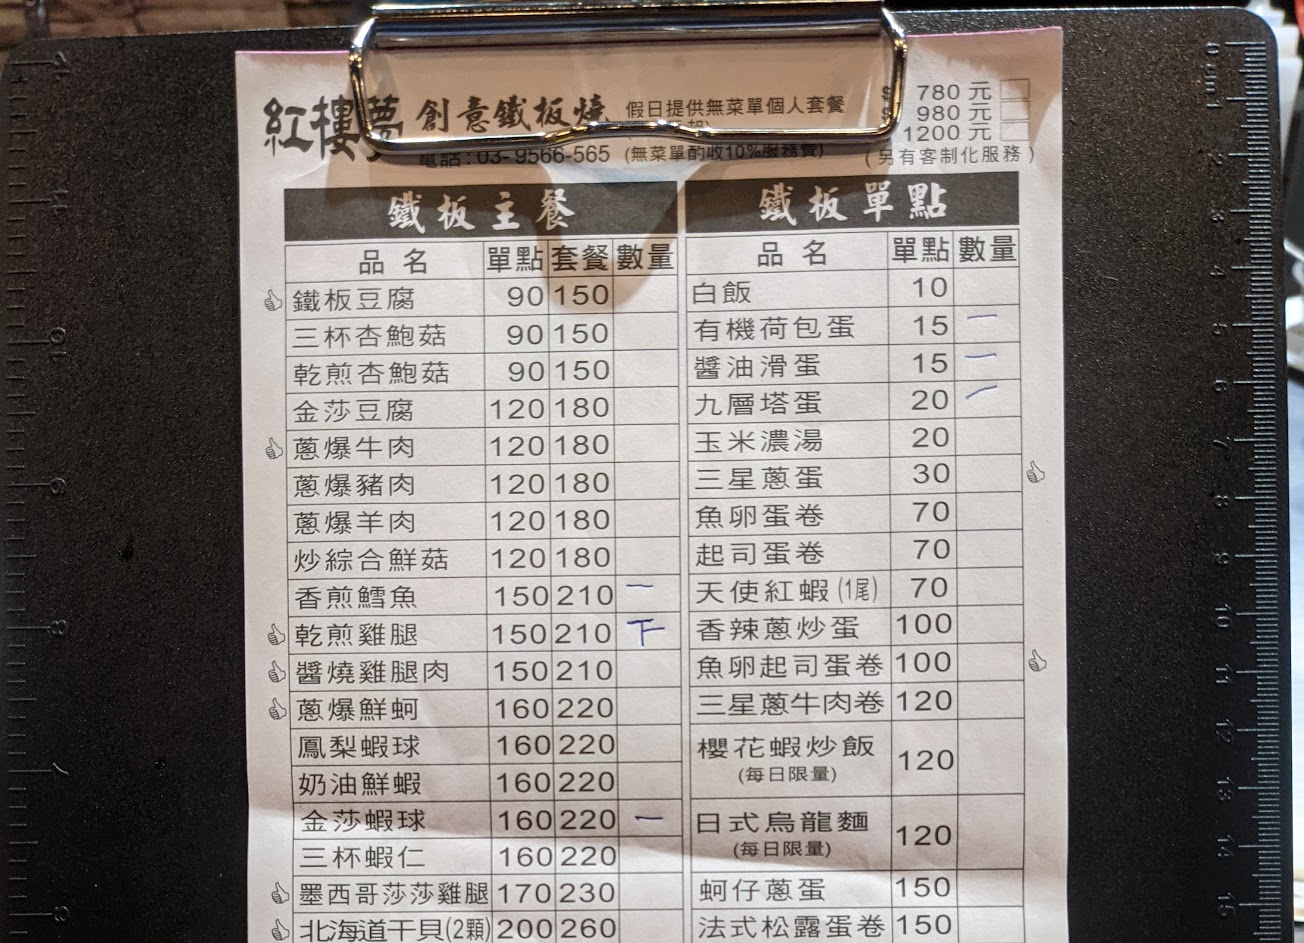 紅樓夢 創意鐵板燒 假日提供無菜單個人套餐
780 元
980 元
1200 元
電話 : 03- 9566-565 (無菜單酌收10%服務費) (另有客制化服務)
鐵板主餐
品 名 單點 套餐 數量
鐵板豆腐 90 150
三杯杏鮑菇 90 150
乾煎杏鮑菇 90 150
金莎豆腐 120 180
蔥爆牛肉 120 180
蔥爆豬肉 120 180
蔥爆羊肉 120 180
炒綜合鮮菇 120 180
香煎鱈魚 150 210 一
乾煎雞腿 150 210 下
醬燒雞腿肉 150 210
蔥爆鮮蚵 160 220
鳳梨蝦球 160 220
奶油鮮蝦 160 220
金莎蝦球 160 220 一
三杯蝦仁 160 220
墨西哥莎莎雞腿 170 230
北海道干貝(2顆) 200 260
鐵板單點
品 名 單點 數量
白飯 10
有機荷包蛋 15 一
醬油滑蛋 15 一
九層塔蛋 20 一
玉米濃湯 20
三星蔥蛋 30
魚卵蛋卷 70
起司蛋卷 70
天使紅蝦(1尾) 70
香辣蔥炒蛋 100
魚卵起司蛋卷 100
三星蔥牛肉卷 120
櫻花蝦炒飯 120
(每日限量)
日式烏龍麵 120
(每日限量)
蚵仔蔥蛋 150
法式松露蛋卷 150
0 cm 1
2
3
4
5
6
7
8
9
10
11
12
13
14
15